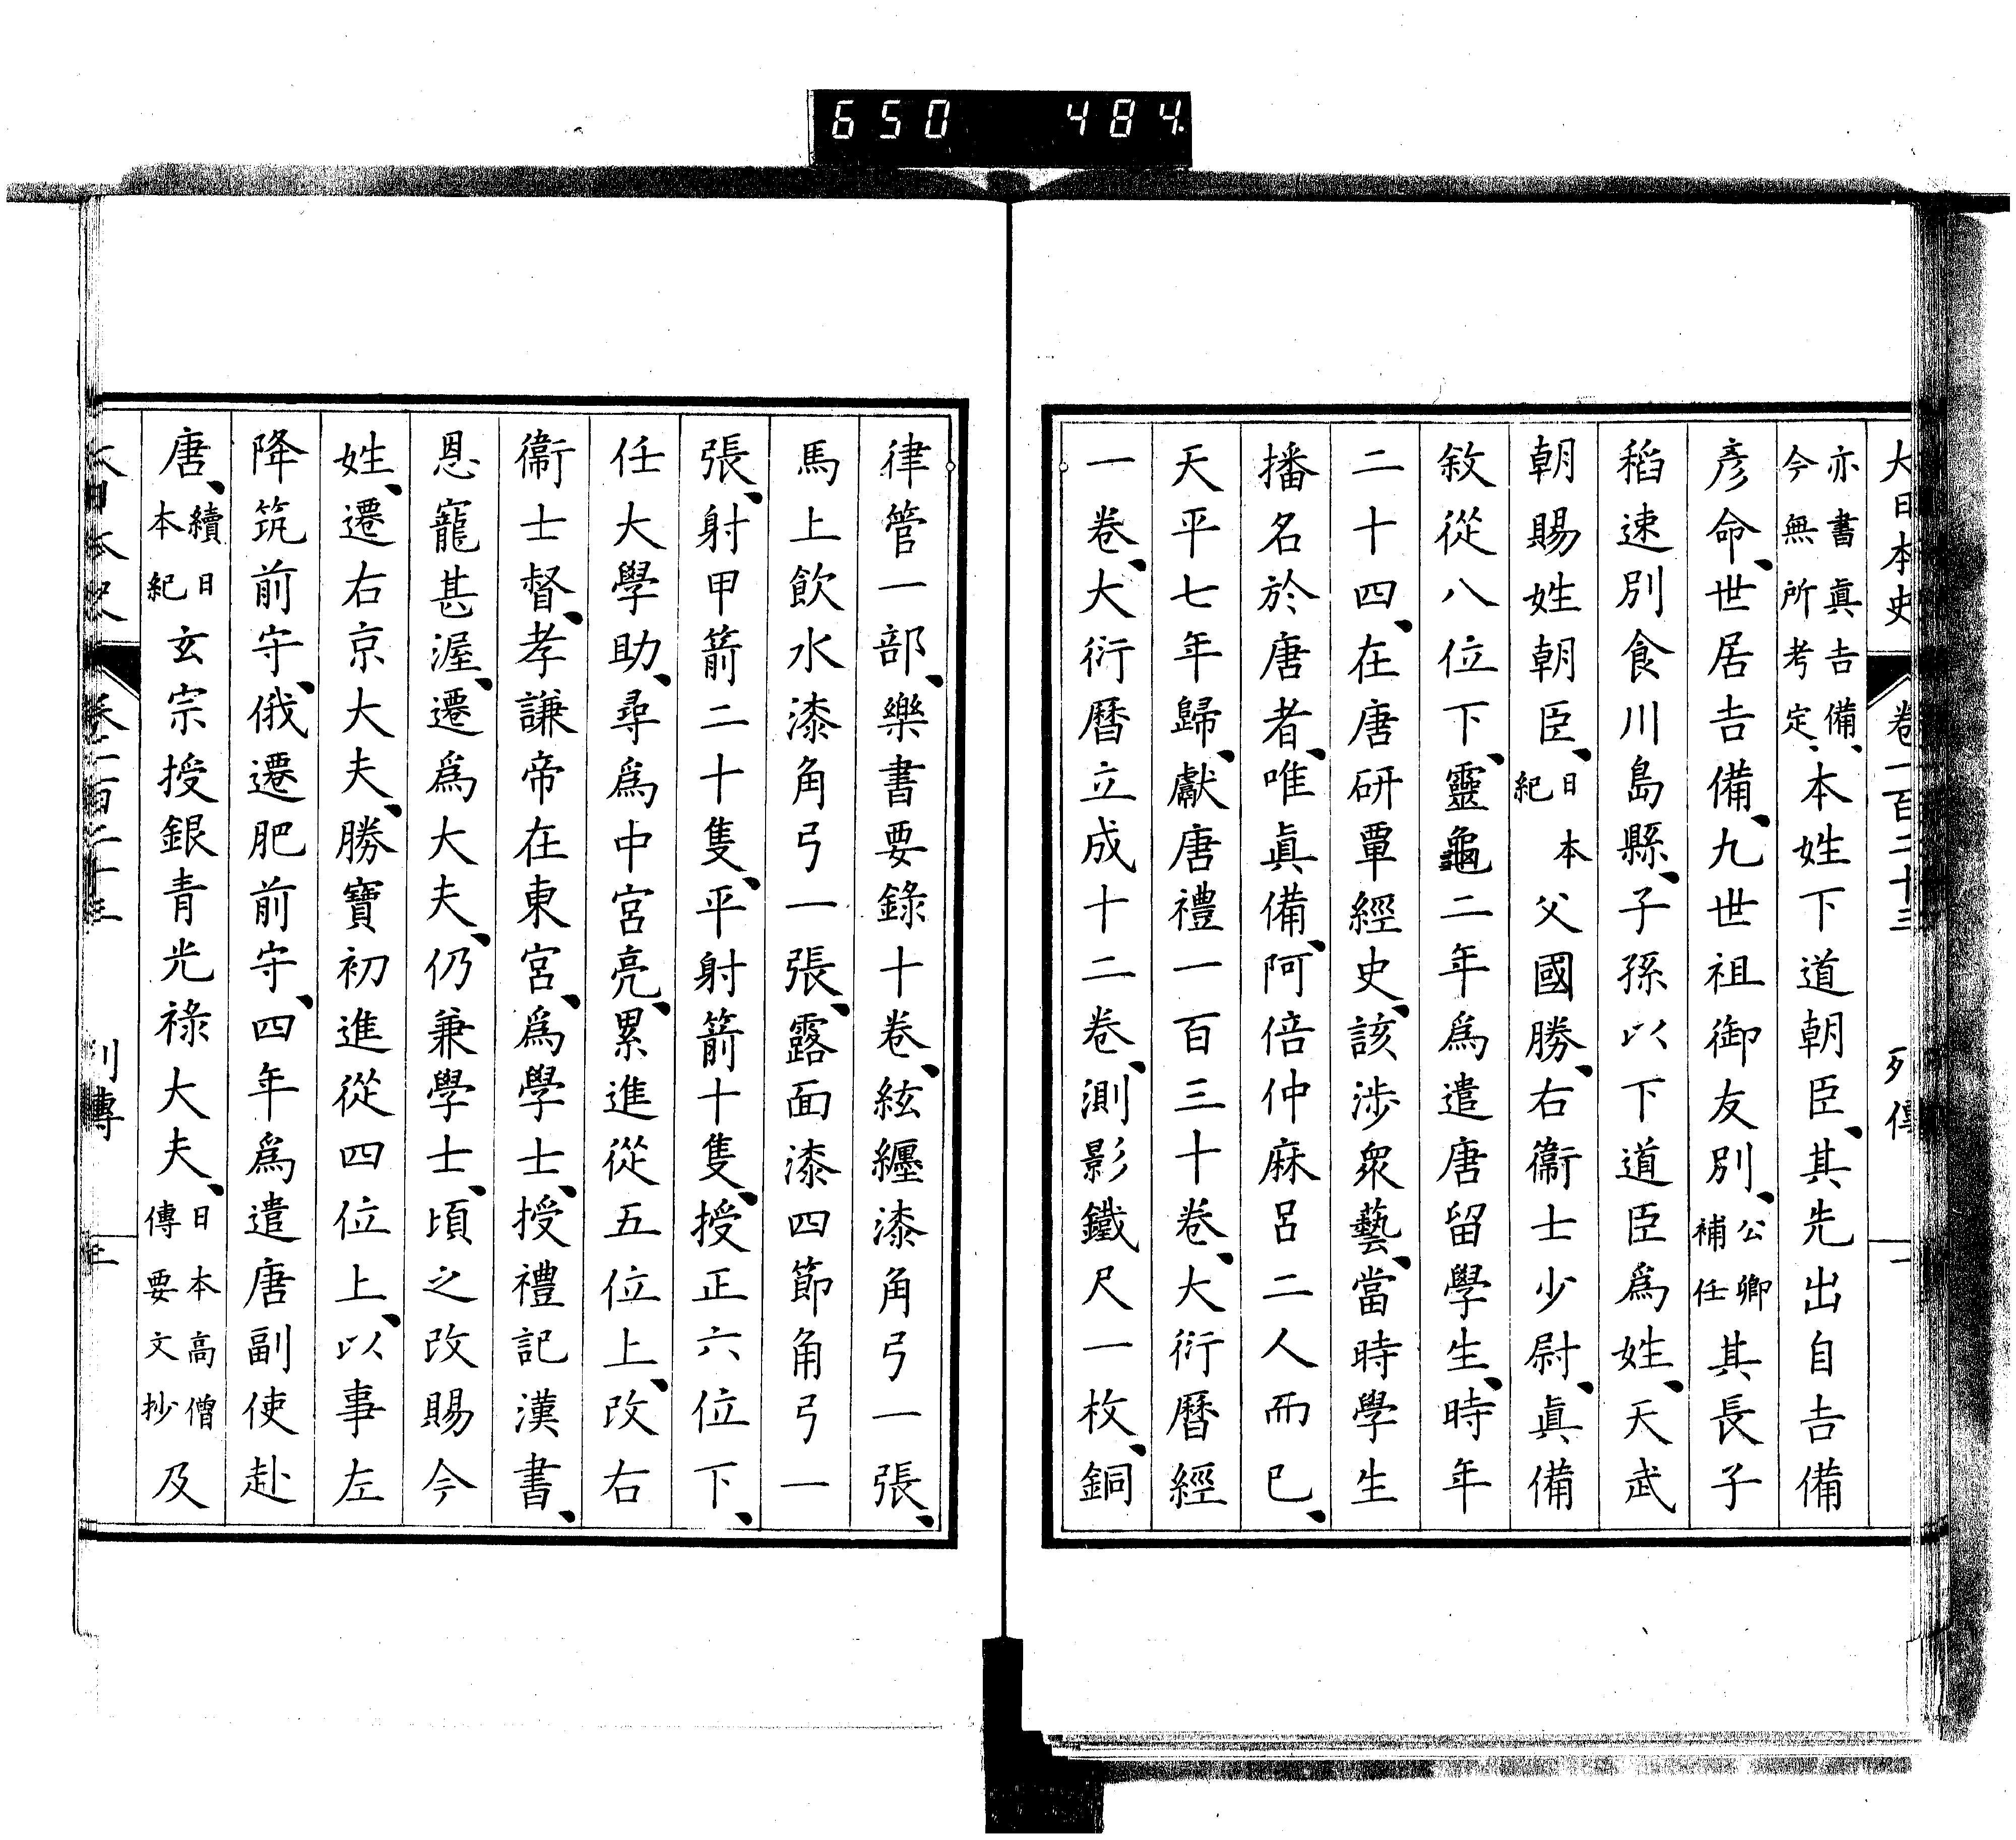 650 484
大日本史 卷一百二十三 列傳
亦書眞吉備、今無所考定、本姓下道朝臣、其先出自吉備
彥命、世居吉備、九世祖御友別、公卿補任其長子
稻速別食川島縣、子孫以下道臣爲姓、天武
朝賜姓朝臣、日本紀父國勝、右衞士少尉、眞備
敘從八位下、靈龜二年爲遣唐留學生、時年
二十四、在唐研覃經史、該涉衆藝、當時學生
播名於唐者、唯眞備、阿倍仲麻呂二人而已、
天平七年歸、獻唐禮一百三十卷、大衍曆經
一卷、大衍曆立成十二卷、測影鐵尺一枚、銅
律管一部、樂書要錄十卷、絃纏漆角弓一張、
馬上飮水漆角弓一張、露面漆四節角弓一
張、射甲箭二十隻、平射箭十隻、授正六位下、
任大學助、尋爲中宮亮、累進從五位上、改右
衞士督、孝謙帝在東宮、爲學士、授禮記漢書、
恩寵甚渥、遷爲大夫、仍兼學士、頃之改賜今
姓、遷右京大夫、勝寶初進從四位上、以事左
降筑前守、俄遷肥前守、四年爲遣唐副使赴
唐、續日本紀玄宗授銀青光祿大夫、日本高僧傳要文抄及
大日本史 卷一百二十三 列傳